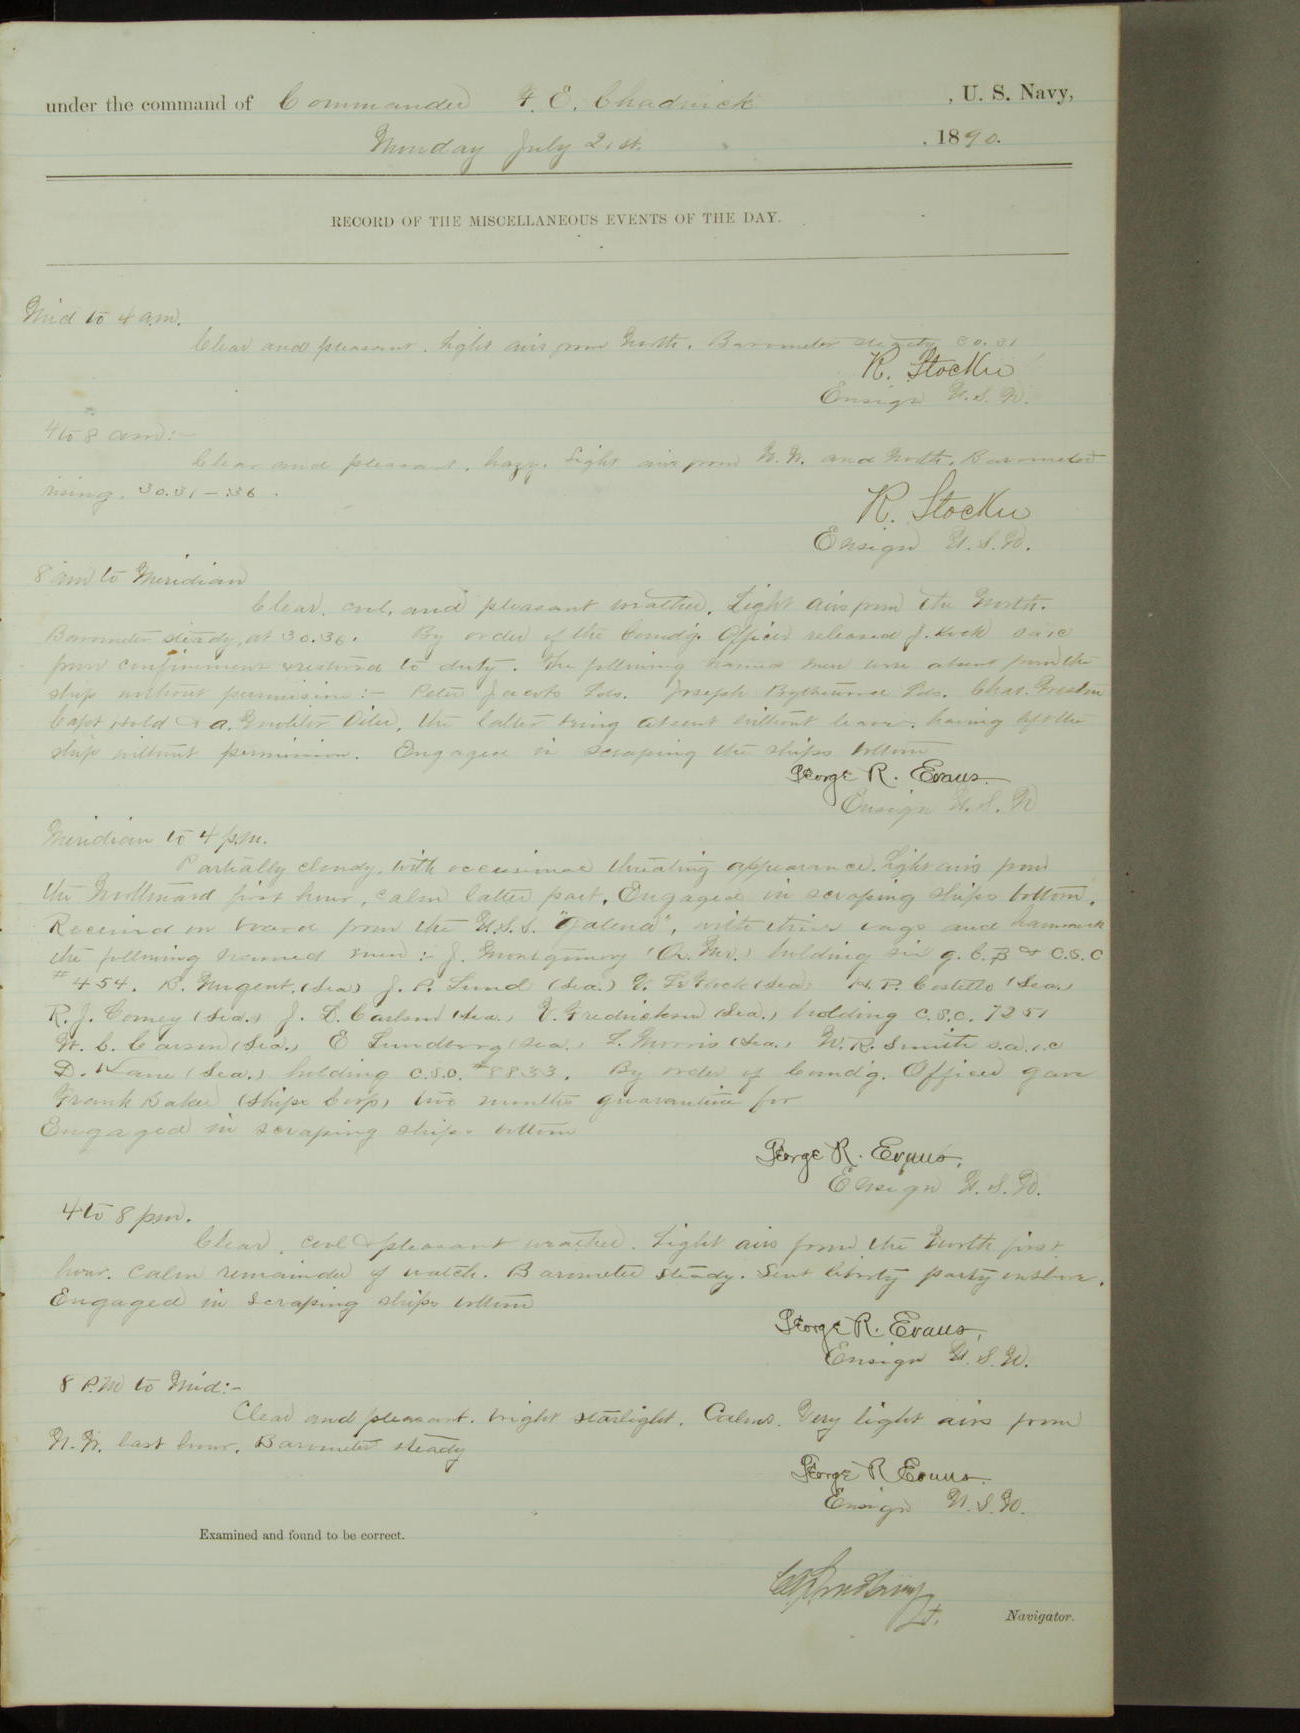 under the command of Commander F. E. Chadwick , U. S. Navy,
Monday July 21st. , 1890.
RECORD OF THE MISCELLANEOUS EVENTS OF THE DAY.
Mid to 4 a.m.
Clear and pleasant. Light airs from North. Barometer steady 30.31
R. Stocker
Ensign U.S.N.
4 to 8 am:-
Clear and pleasant, hazy. Light airs from N.W. and North. Barometer
rising. 30.31-.36.
R. Stocker
Ensign U.S.N.
8 am to Meridian
Clear, cool, and pleasant weather. Light airs from the North.
Barometer steady, at 30.36. By order of the Comdg. Officer released J.
from confinement & restored to duty. The following named men were absent from the
ship without permission:- Peter Jacobs Lds. Joseph Lds. Chas.
Capt Hold & A. Oiler, the latter being absent without leave, having left the
ship without permission. Engaged in scraping the ships bottom
George R. Evans.
Ensign U.S.N
Meridian to 4 p.m.
Partially cloudy, with occasional threating appearance. Light airs from
the Northward first hour, calm latter part. Engaged in scraping ships bottom.
Received on board from the U.S.S. "Galena", with their bags and hammock
the following named men:- J. Montgomery (Q. Mr.) holding six g.C.B & C.S.C
#454. B. Nugent. (Sea) J. P. Lund (Sea.) (Sea) H. P. Costello (Sea.)
R. J. Comey (Sea.) J. L. Carlson (Sea.) V. Fredrickson (Sea.) holding C.S.C. 7251
W. C. Carson (Sea.) E Lundberg (Sea.) L. Morris (Sea.) W. R. Smith s.a.1.c
D. Kane (Sea.) holding C.S.C. #8833. By order of Comdg. Officer gave
Frank Baker (Ships Corp) two months quarantine for
Engaged in scraping ships bottom
George R. Evans,
Ensign U.S.N.
4 to 8 pm.
Clear, cool & pleasant weather. Light airs from the North first
hour. Calm remainder of watch. Barometer steady. Sent liberty party onshore.
Engaged in scraping ships bottom
George R. Evans,
Ensign U.S.N.
8 P.M to Mid:-
Clear and pleasant. bright starlight. Calms. Very light airs from
N.W. last hour. Barometer steady
George R Evans.
Ensign U.S.N.
Examined and found to be correct.
Lt.
Navigator.